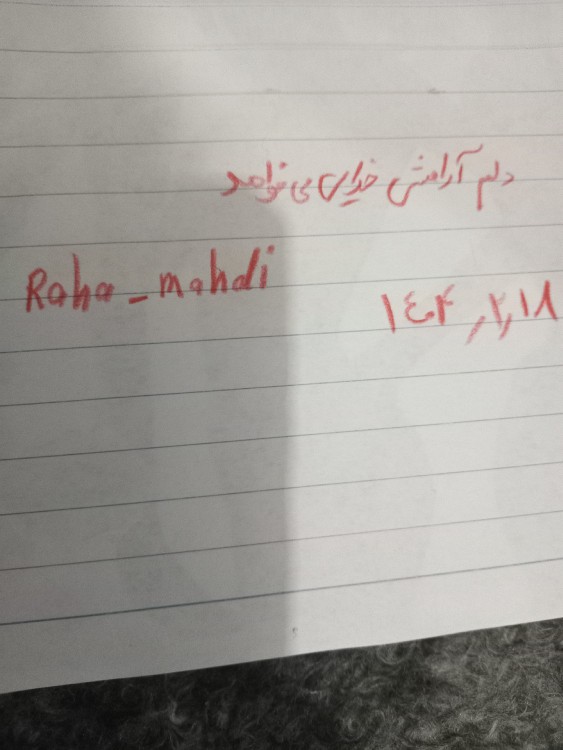 دلم آرامش خدایی می خواهد
Raha_mahdi
۱۴۰۴٫۲٫۱۸